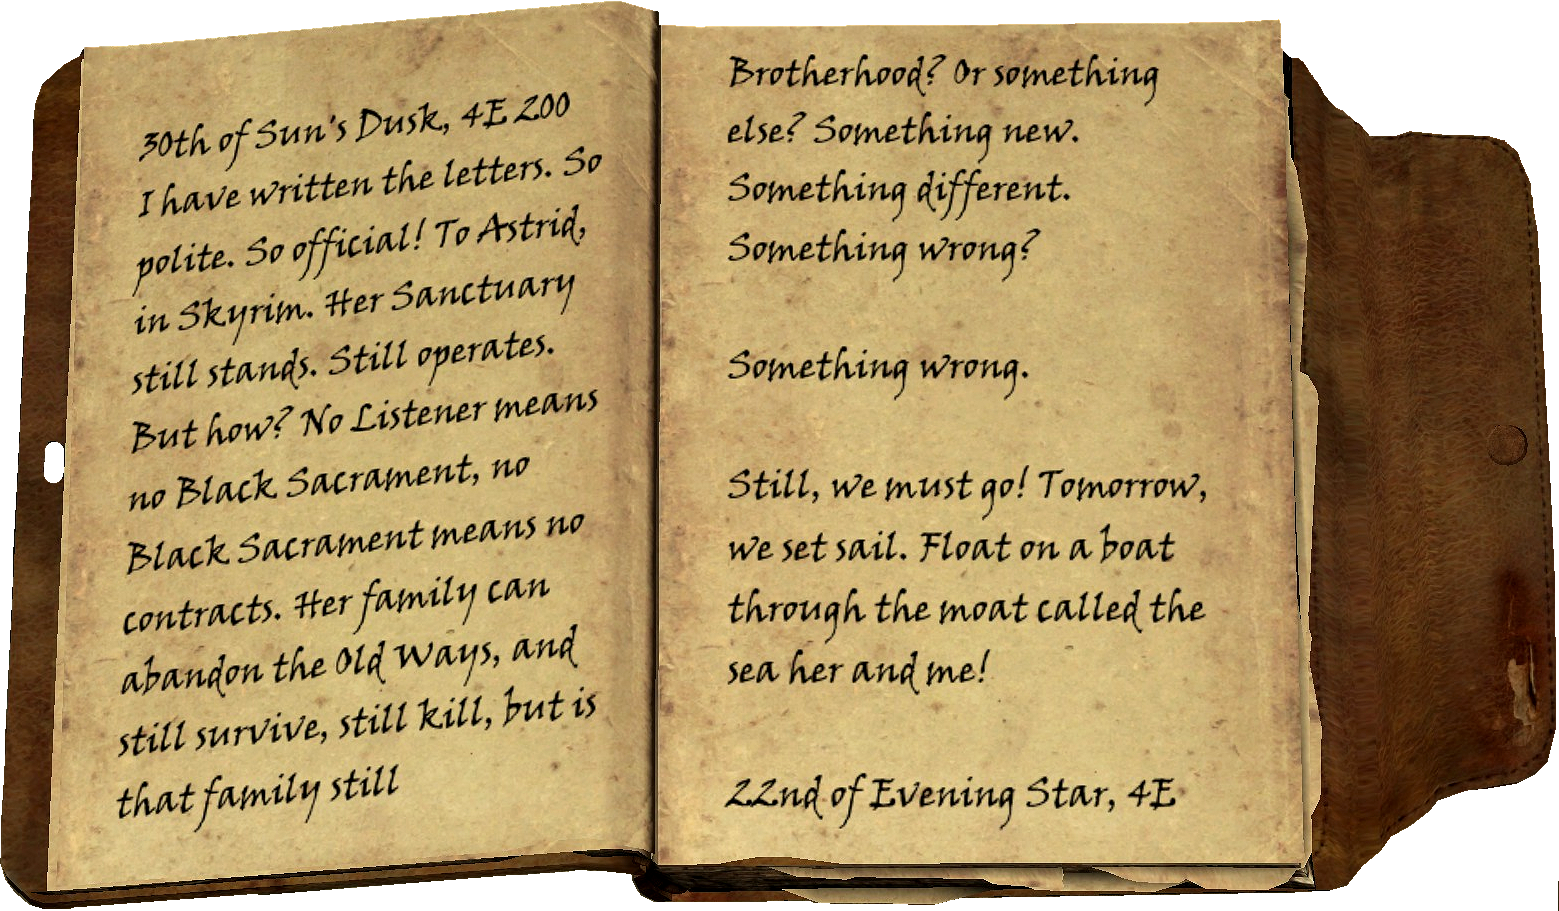 30th of Sun's Dusk, 4E 200
I have written the letters. So
polite. So official! To Astrid,
in Skyrim. Her Sanctuary
still stands. Still operates.
But how? No Listener means
no Black Sacrament, no
Black Sacrament means no
contracts. Her family can
abandon the Old Ways, and
still survive, still kill, but is
that family still
Brotherhood? Or something
else? Something new.
Something different.
Something wrong?
Something wrong.
Still, we must go! Tomorrow,
we set sail. Float on a boat
through the moat called the
sea her and me!
22nd of Evening Star, 4E